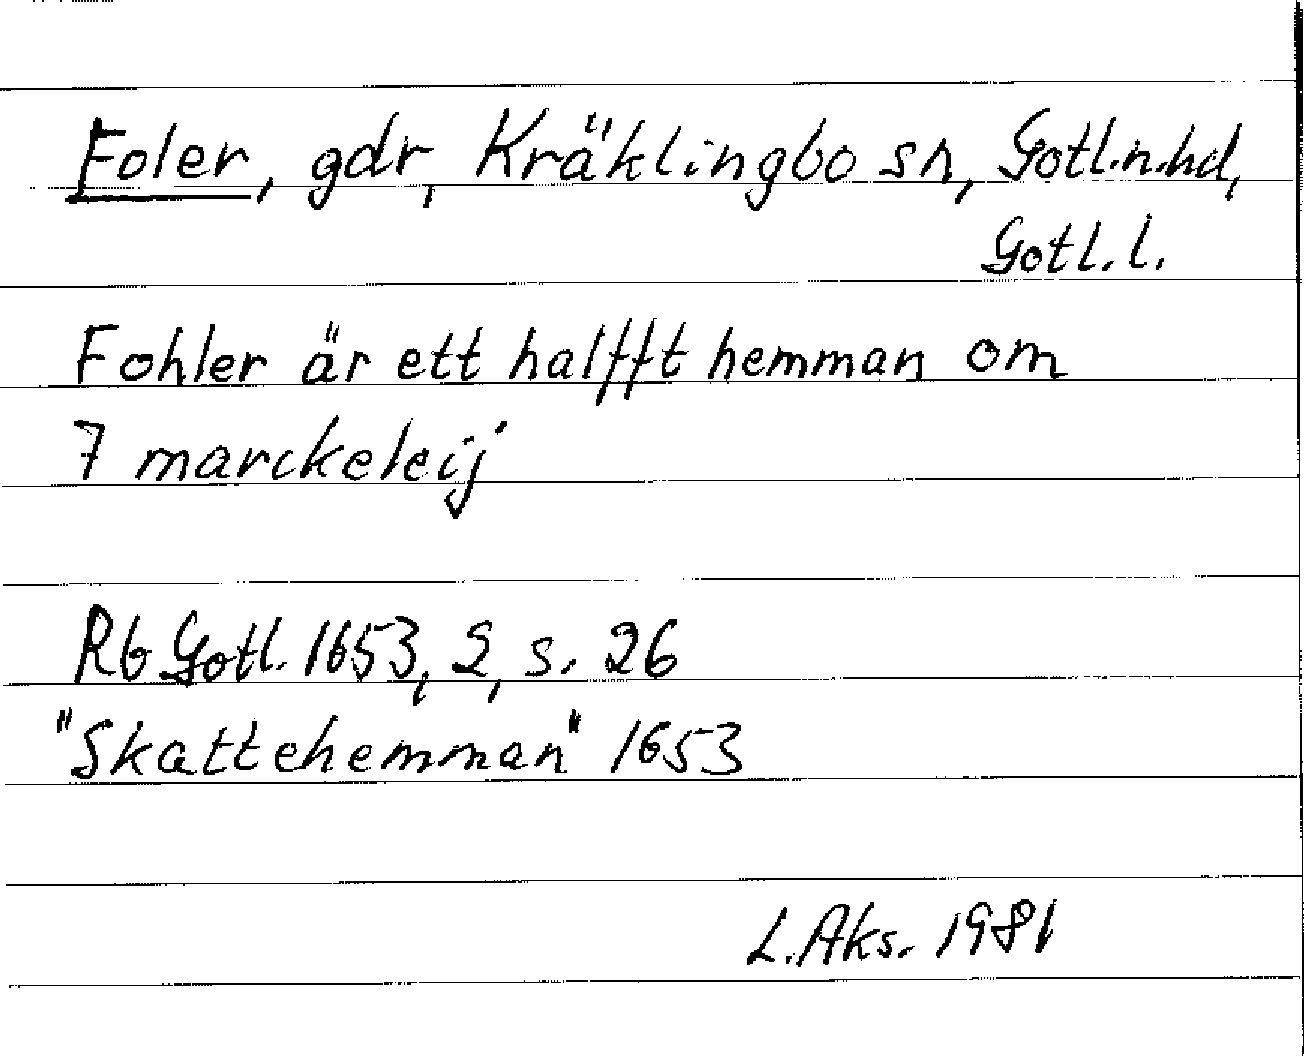 Foler, gdr, Kräklingbo sn, Gotl.n.hd,
Gotl. l.
Fohler är ett halfft hemman om
7 marckeleij
Rb Gotl. 1653, 2, s. 26
"Skattehemman" 1653
L. Aks. 1981